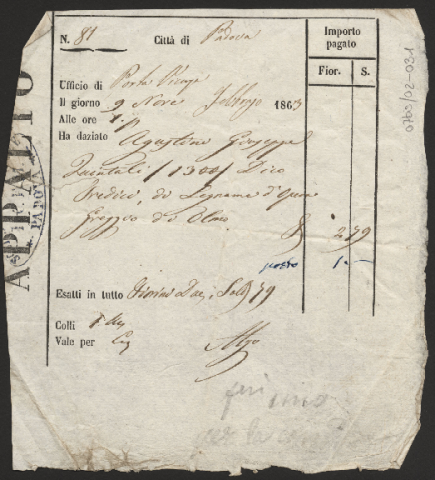 N. 81 Città di Padova
Importo pagato
Fior. S.
Ufficio di Porta
Il giorno 9 Nove Febbrajo 1863
Alle ore
Ha daziato Agostini Giuseppe
Quintali /1300/ Dico
Tredici, di Legname d'Opera
Grezzo di Olmo
2 79
Esatti in tutto Fiorini Due, Soldi 79
Colli
Vale per
APPALTO
PADOVA
0790/02-031
per la